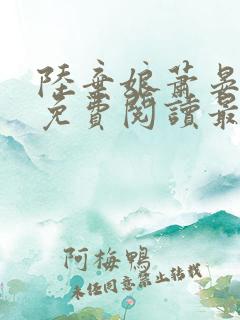 陸棄娘蕭晏
免費閱讀最
阿梅鴨
未经同意禁止转载